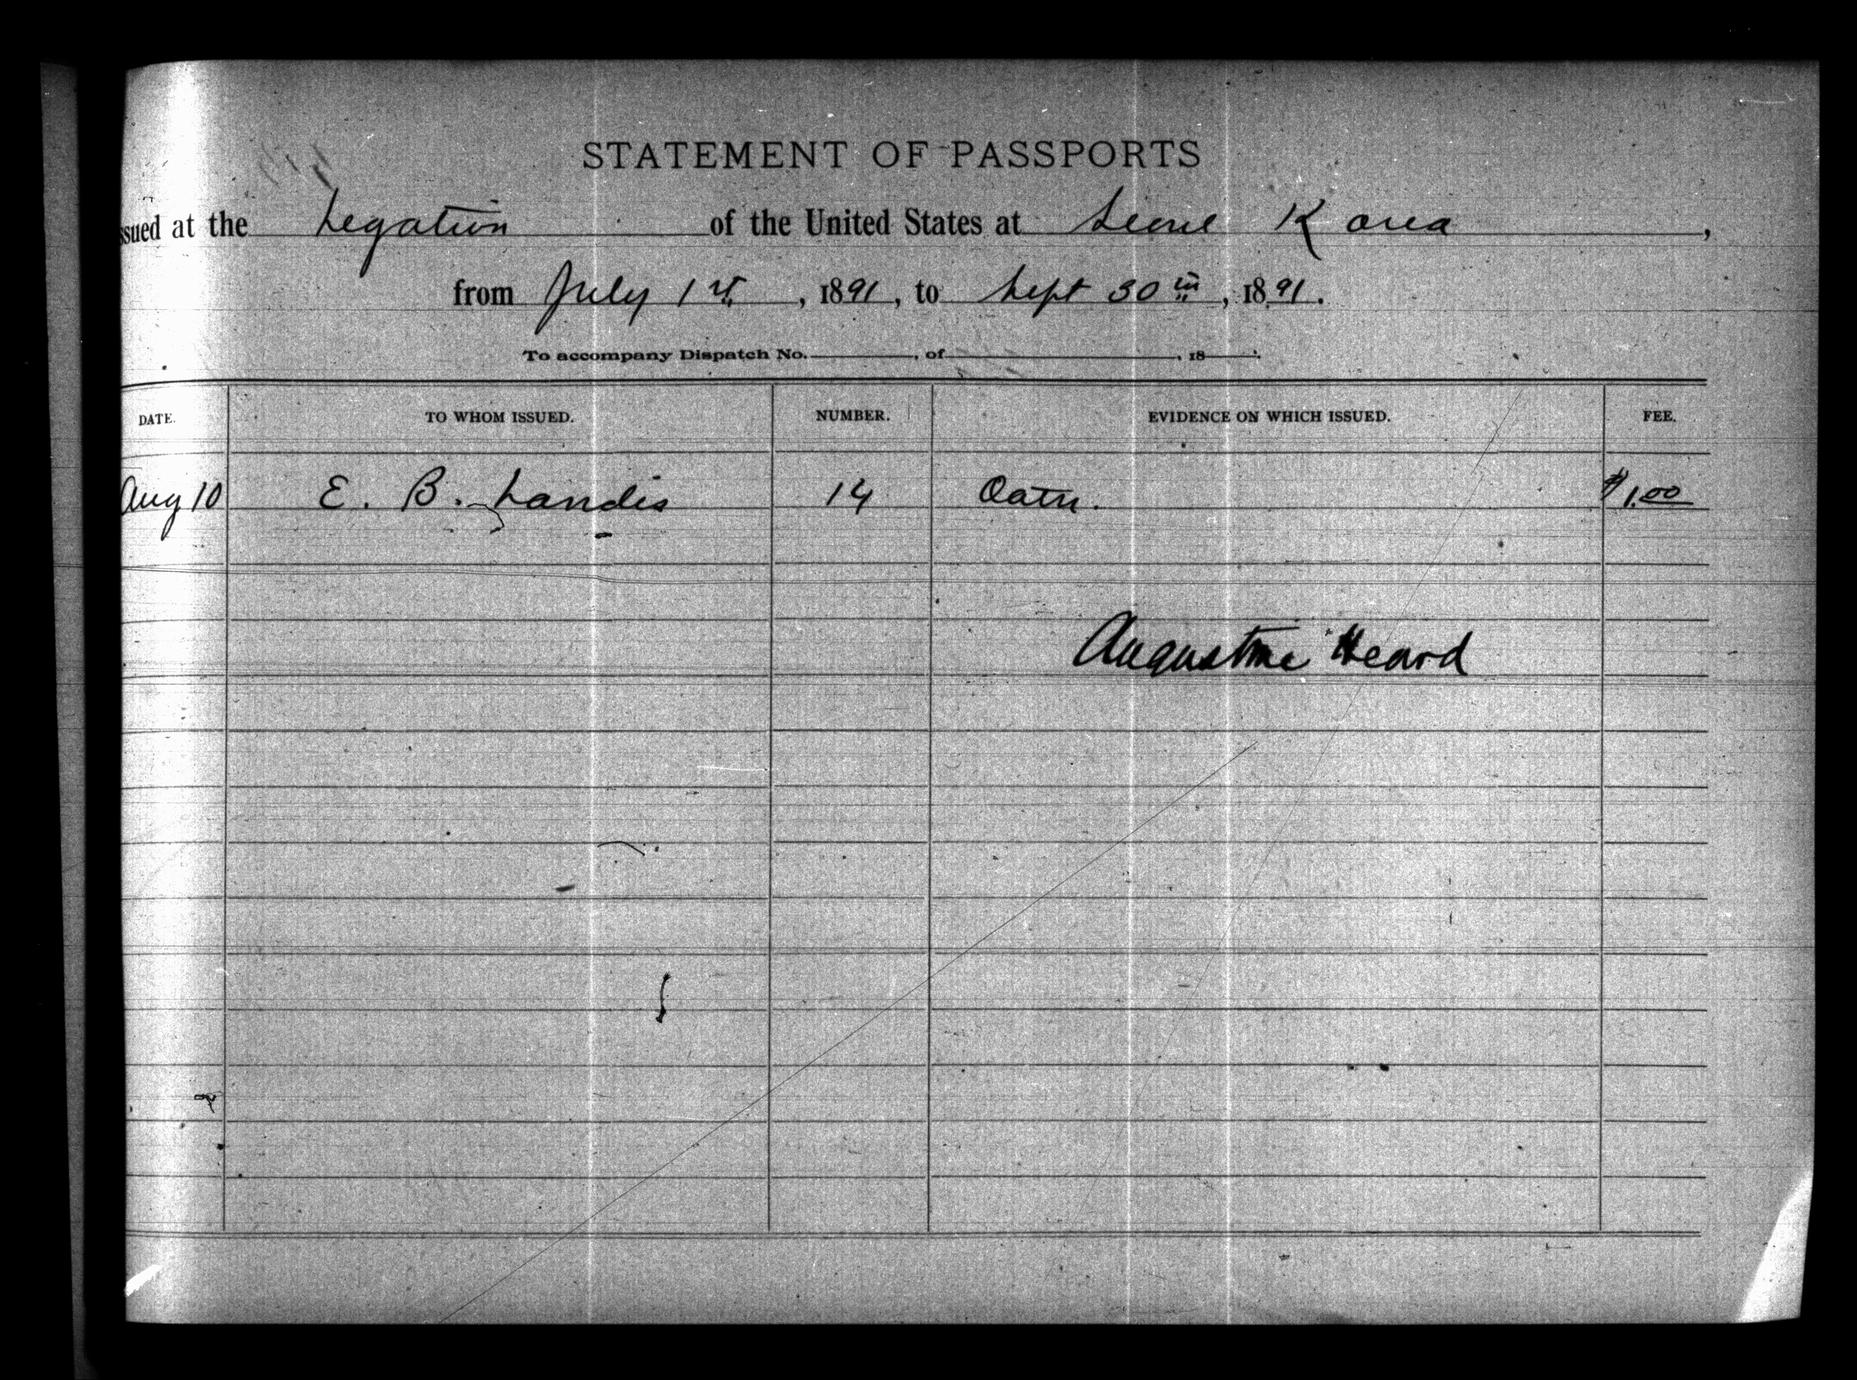 STATEMENT OF PASSPORTS
ssued at the Legation of the United States at Seoul Korea,
from July 1st, 1891, to Sept 30th, 1891.
To accompany Dispatch No. , of , 18 .
DATE. TO WHOM ISSUED. NUMBER. EVIDENCE ON WHICH ISSUED. FEE.
Aug 10 E. B. Landis 14 Oath. $1.00
Augustine Heard